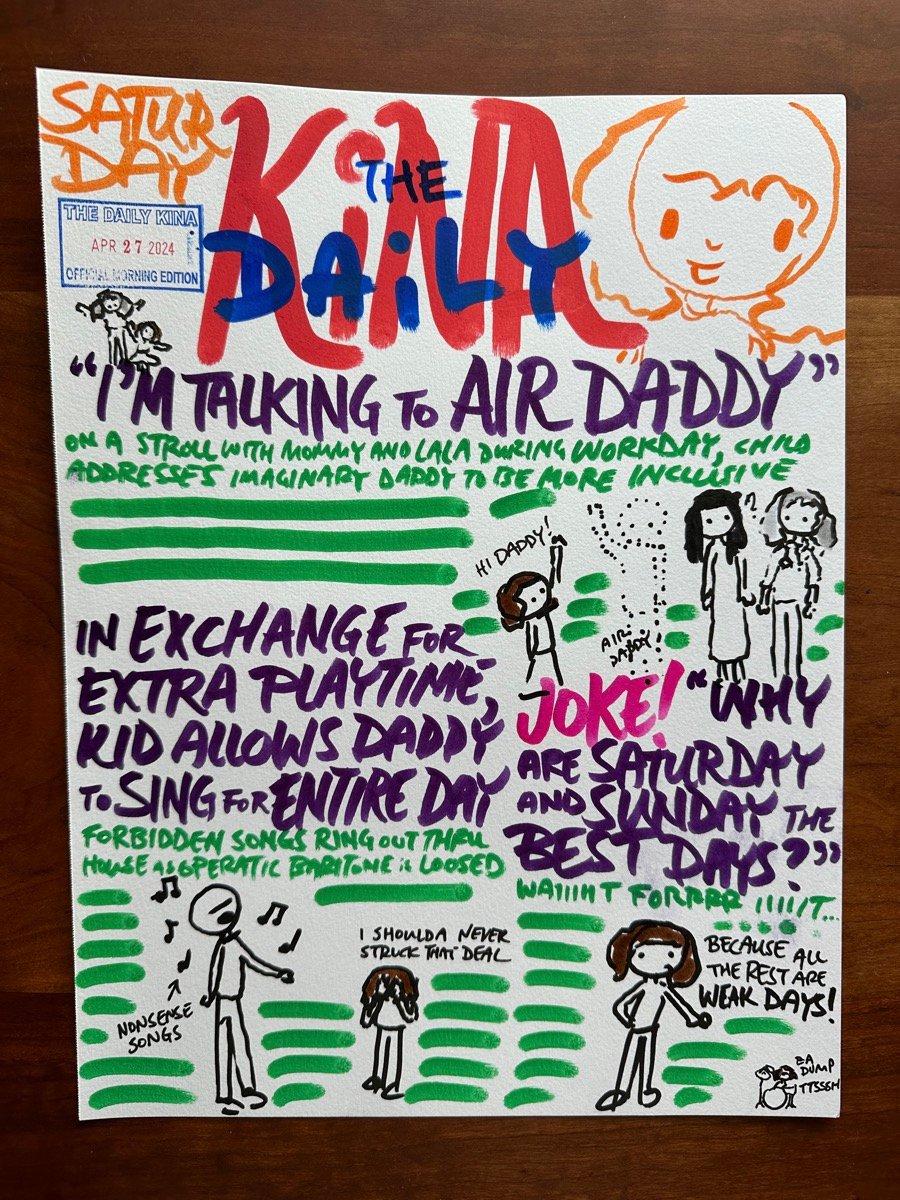 SATUR
DAY
THE DAILY KINA
APR 27 2024
OFFICIAL MORNING EDITION
THE
DAiLY
KiNA
"I'M TALKING TO AIR DADDY"
ON A STROLL WITH MOMMY AND LALA DURING WORKDAY, CHILD
ADDRESSES IMAGINARY DADDY TO BE MORE INCLUSIVE
HI DADDY!
?
AIR
DADDY!
IN EXCHANGE FOR
EXTRA PLAYTIME,
KID ALLOWS DADDY
TO SING FOR ENTIRE DAY
FORBIDDEN SONGS RING OUT THRU
HOUSE AS OPERATIC BARITONE IS LOOSED
NONSENSE
SONGS
I SHOULDA NEVER
STRUCK THAT DEAL
JOKE! "WHY
ARE SATURDAY
AND SUNDAY THE
BEST DAYS?"
WAIIIIIT FORRRR IIIIIT...
BECAUSE ALL
THE REST ARE
WEAK DAYS!
EA
DUMP